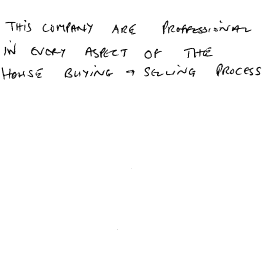 THIS COMPANY ARE PROFFESSIONAL
IN EVERY ASPECT OF THE
HOUSE BUYING + SELLING PROCESS